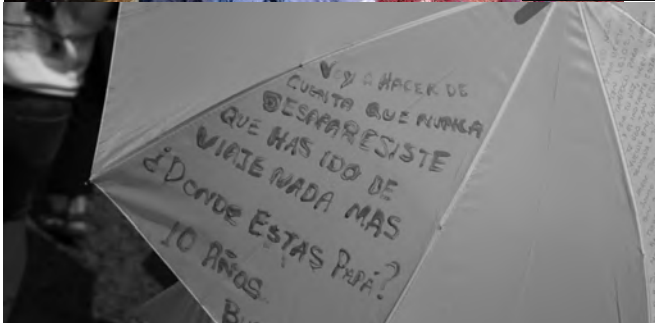 VOY A HACER DE
CUENTA QUE NUNCA
DESAPARESISTE
QUE HAS IDO DE
VIAJE NADA MAS
¿DONDE ESTAS PAPÁ?
10 AÑOS..